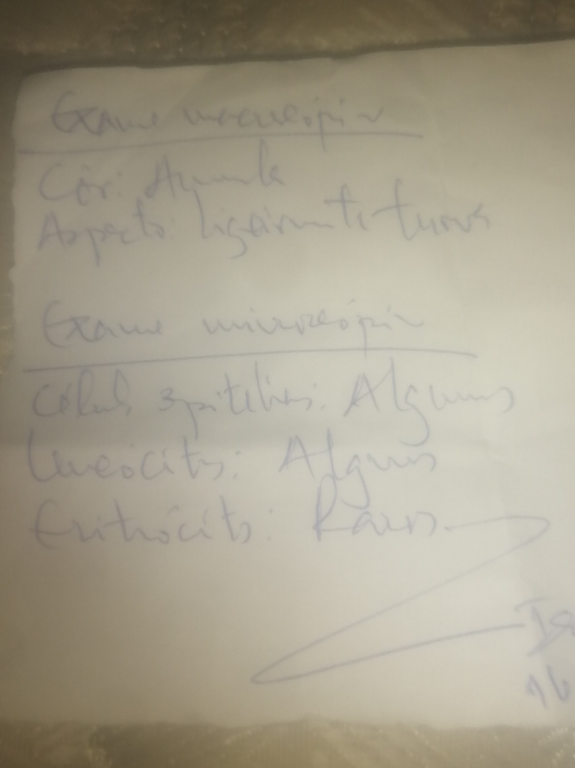 Exame macroscópico
Côr: Amarela
Aspecto: ligeiramente turva
Exame microscópico
Células epiteliais: Algumas
Leucócitos: Alguns
Eritrócitos: Raros